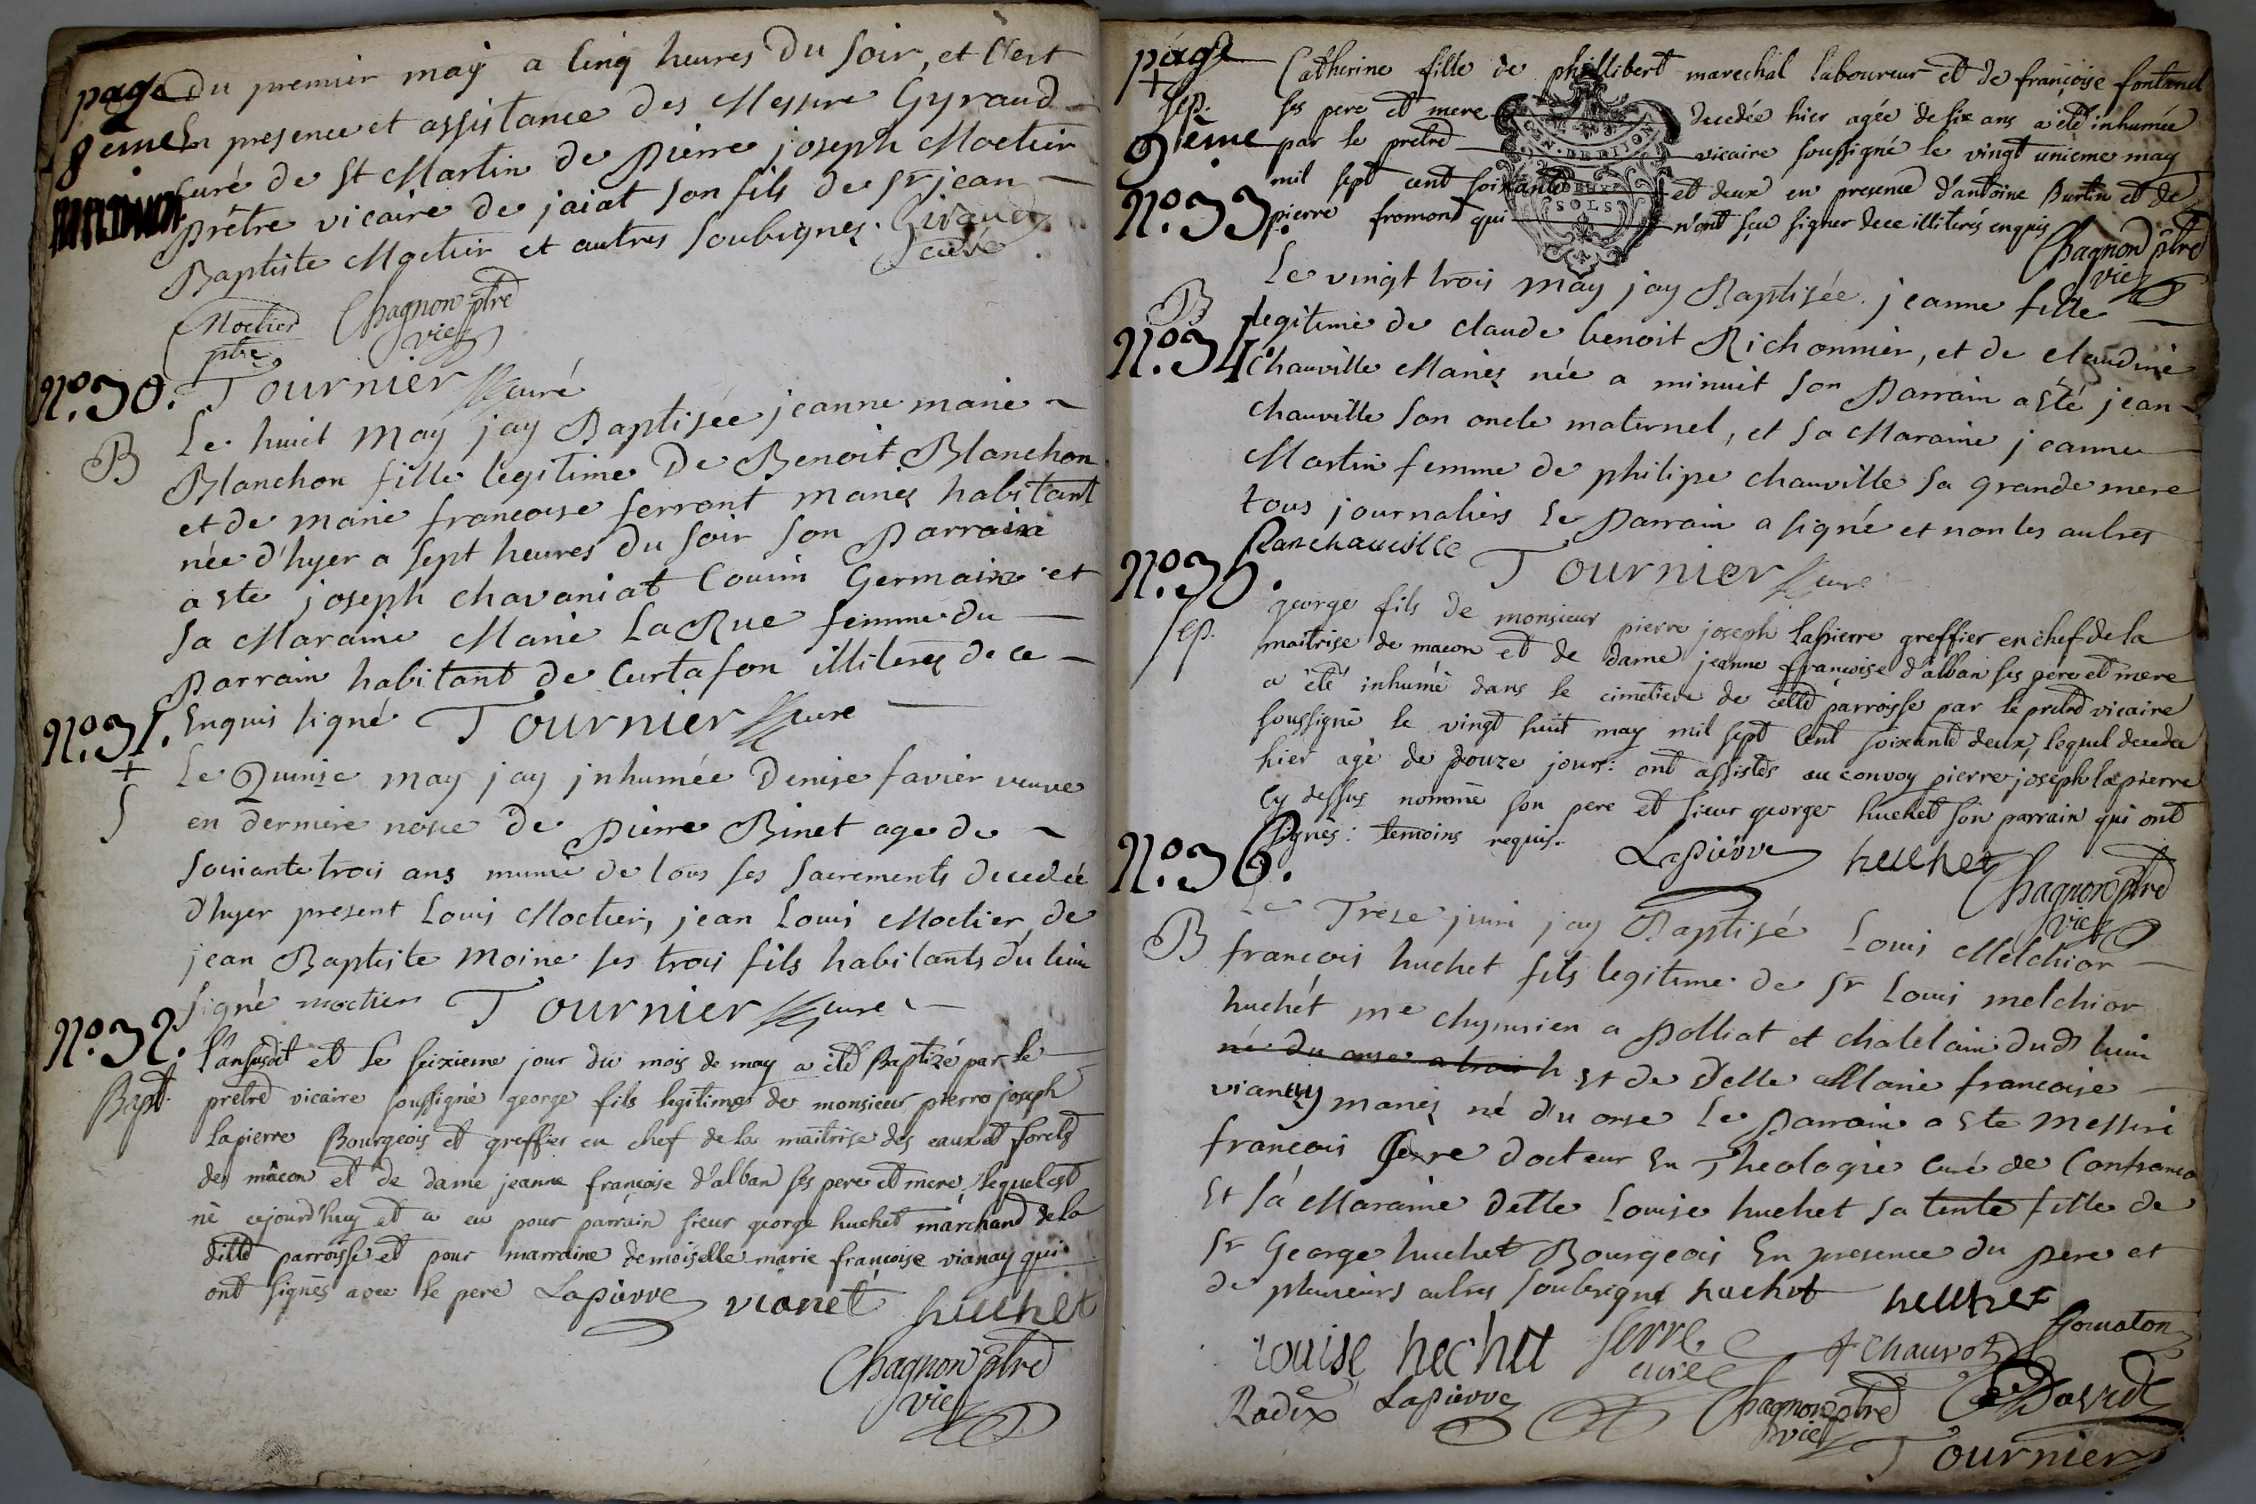 page
8eme
du premier maÿ a Cinq heures du soir, et C'est
En presence et assistance des Messire Gyraud
Curé de St Martin de Pierre joseph Moctier
Prêtre vicaire de jaiat son fils de Sr jean
Baptiste Moctier et autres soubsignez. Giraud
curé
Moctier Chagnon ptre
ptre vic
No. 30. Tournier curé
B
Le huit May jay Baptisée jeanne marie
Blanchon fille legitime De Benoit Blanchon
et de marie francoise ferrant mariez habitant
née d'hyer a sept heures du soir son Parrain
a ste joseph chavaniat Cousin Germain et
sa Maraine Marie La Rue femme du
Parrain habitant de Curtafon illiterez de ce
No. 31. Enquis signé Tournier curé
+
S
Le Quinse may jay jnhumée Denise favier veuve
en derniere nosse de Pierre Binet age de
soisiante trois ans munie de tous ses sacrements decedée
d'hyer present Louis Moctier, jean Louis Moctier, de
jean Baptiste Moine ses trois fils habitants du lieu
signé moctier Tournier curé
No. 32.
Bapt.
l'an susdit et le seixieme jour du mois de may a été Baptizé par le
pretre vicaire soussigné george fils legitime de monsieur pierre joseph
lapierre Bourgeois et greffier en chef de la maitrise des eaux et forets
de mâcon et de dame jeanne françoise d'alban ses pere et mere, lequel est
né cejourd'huy et a eu pour parrain sieur george huchet marchand de la
ditte parroisse et pour marraine demoiselle marie francoise vianay qui
ont signés avec le pere Lapierre vianet huchet
Chagnon ptre
vic
page
9ieme
+
sep.
No. 33.
Catherine fille de phillibert marechal laboureur et de françoise fontanel
ses pere et mere decedée hier agée de six ans a été inhumée
par le pretre vicaire soussigné le vingt unieme may
mil sept cent soixante et deux en presence d'antoine Burtin et de
pierre fromont qui n'ont sçu signer de ce illiterés enquis
Chagnon ptre
vic
EN. DE DIJON
SOLS
B
No. 34
Le vingt trois may jay Baptisée jeanne fille
legitime de claude benoit Richonnier, et de claudine
Chauville Mariez née a minuit son Parrain a sté jean
chauville son oncle maternel, et sa Maraine jeanne
Martin femme de philipe chauville sa grande mere
tous journaliers Le Parrain a signé et non les autres
Jean chauville Tournier curé
No. 35.
sep.
george fils de monsieur pierre joseph lapierre greffier en chef de la
maitrise de macon et de dame jeanne françoise d'alban ses pere et mere
a été inhumé dans le cimetiere de cette parroisse par le pretre vicaire
soussigné le vingt huit may mil sept cent soixante deux, lequel decedé
hier agé de douze jours: ont assistés au convoy pierre joseph lapierre
cy dessus nommé son pere et sieur george huchet son parrain qui ont
signés: temoins requis. Lapierre huchet
Chagnon ptre
vic
No. 36.
B
Le Trese juin jay Baptisé Louis Melchior
francois huchet fils legitime de Sr Louis melchior
huchet me chyrurien a Polliat et chatelain dud lieu
né du onse a trois h Et de Delle Marie francoise
vianay mariez né du onse Le Parrain a ste Messire
francois Serre docteur En Theologie Curé de Confrancon
Et sa Maraine delle Louise huchet sa tente fille de
Sr George huchet Bourgeois En presence du pere et
de plusieurs autres soubsignes huchet huchet
Gonnaton
Louise hechet Serre
curé
A Chauvot
Radix Lapierre Chagnon ptre
vic
David
Tournier